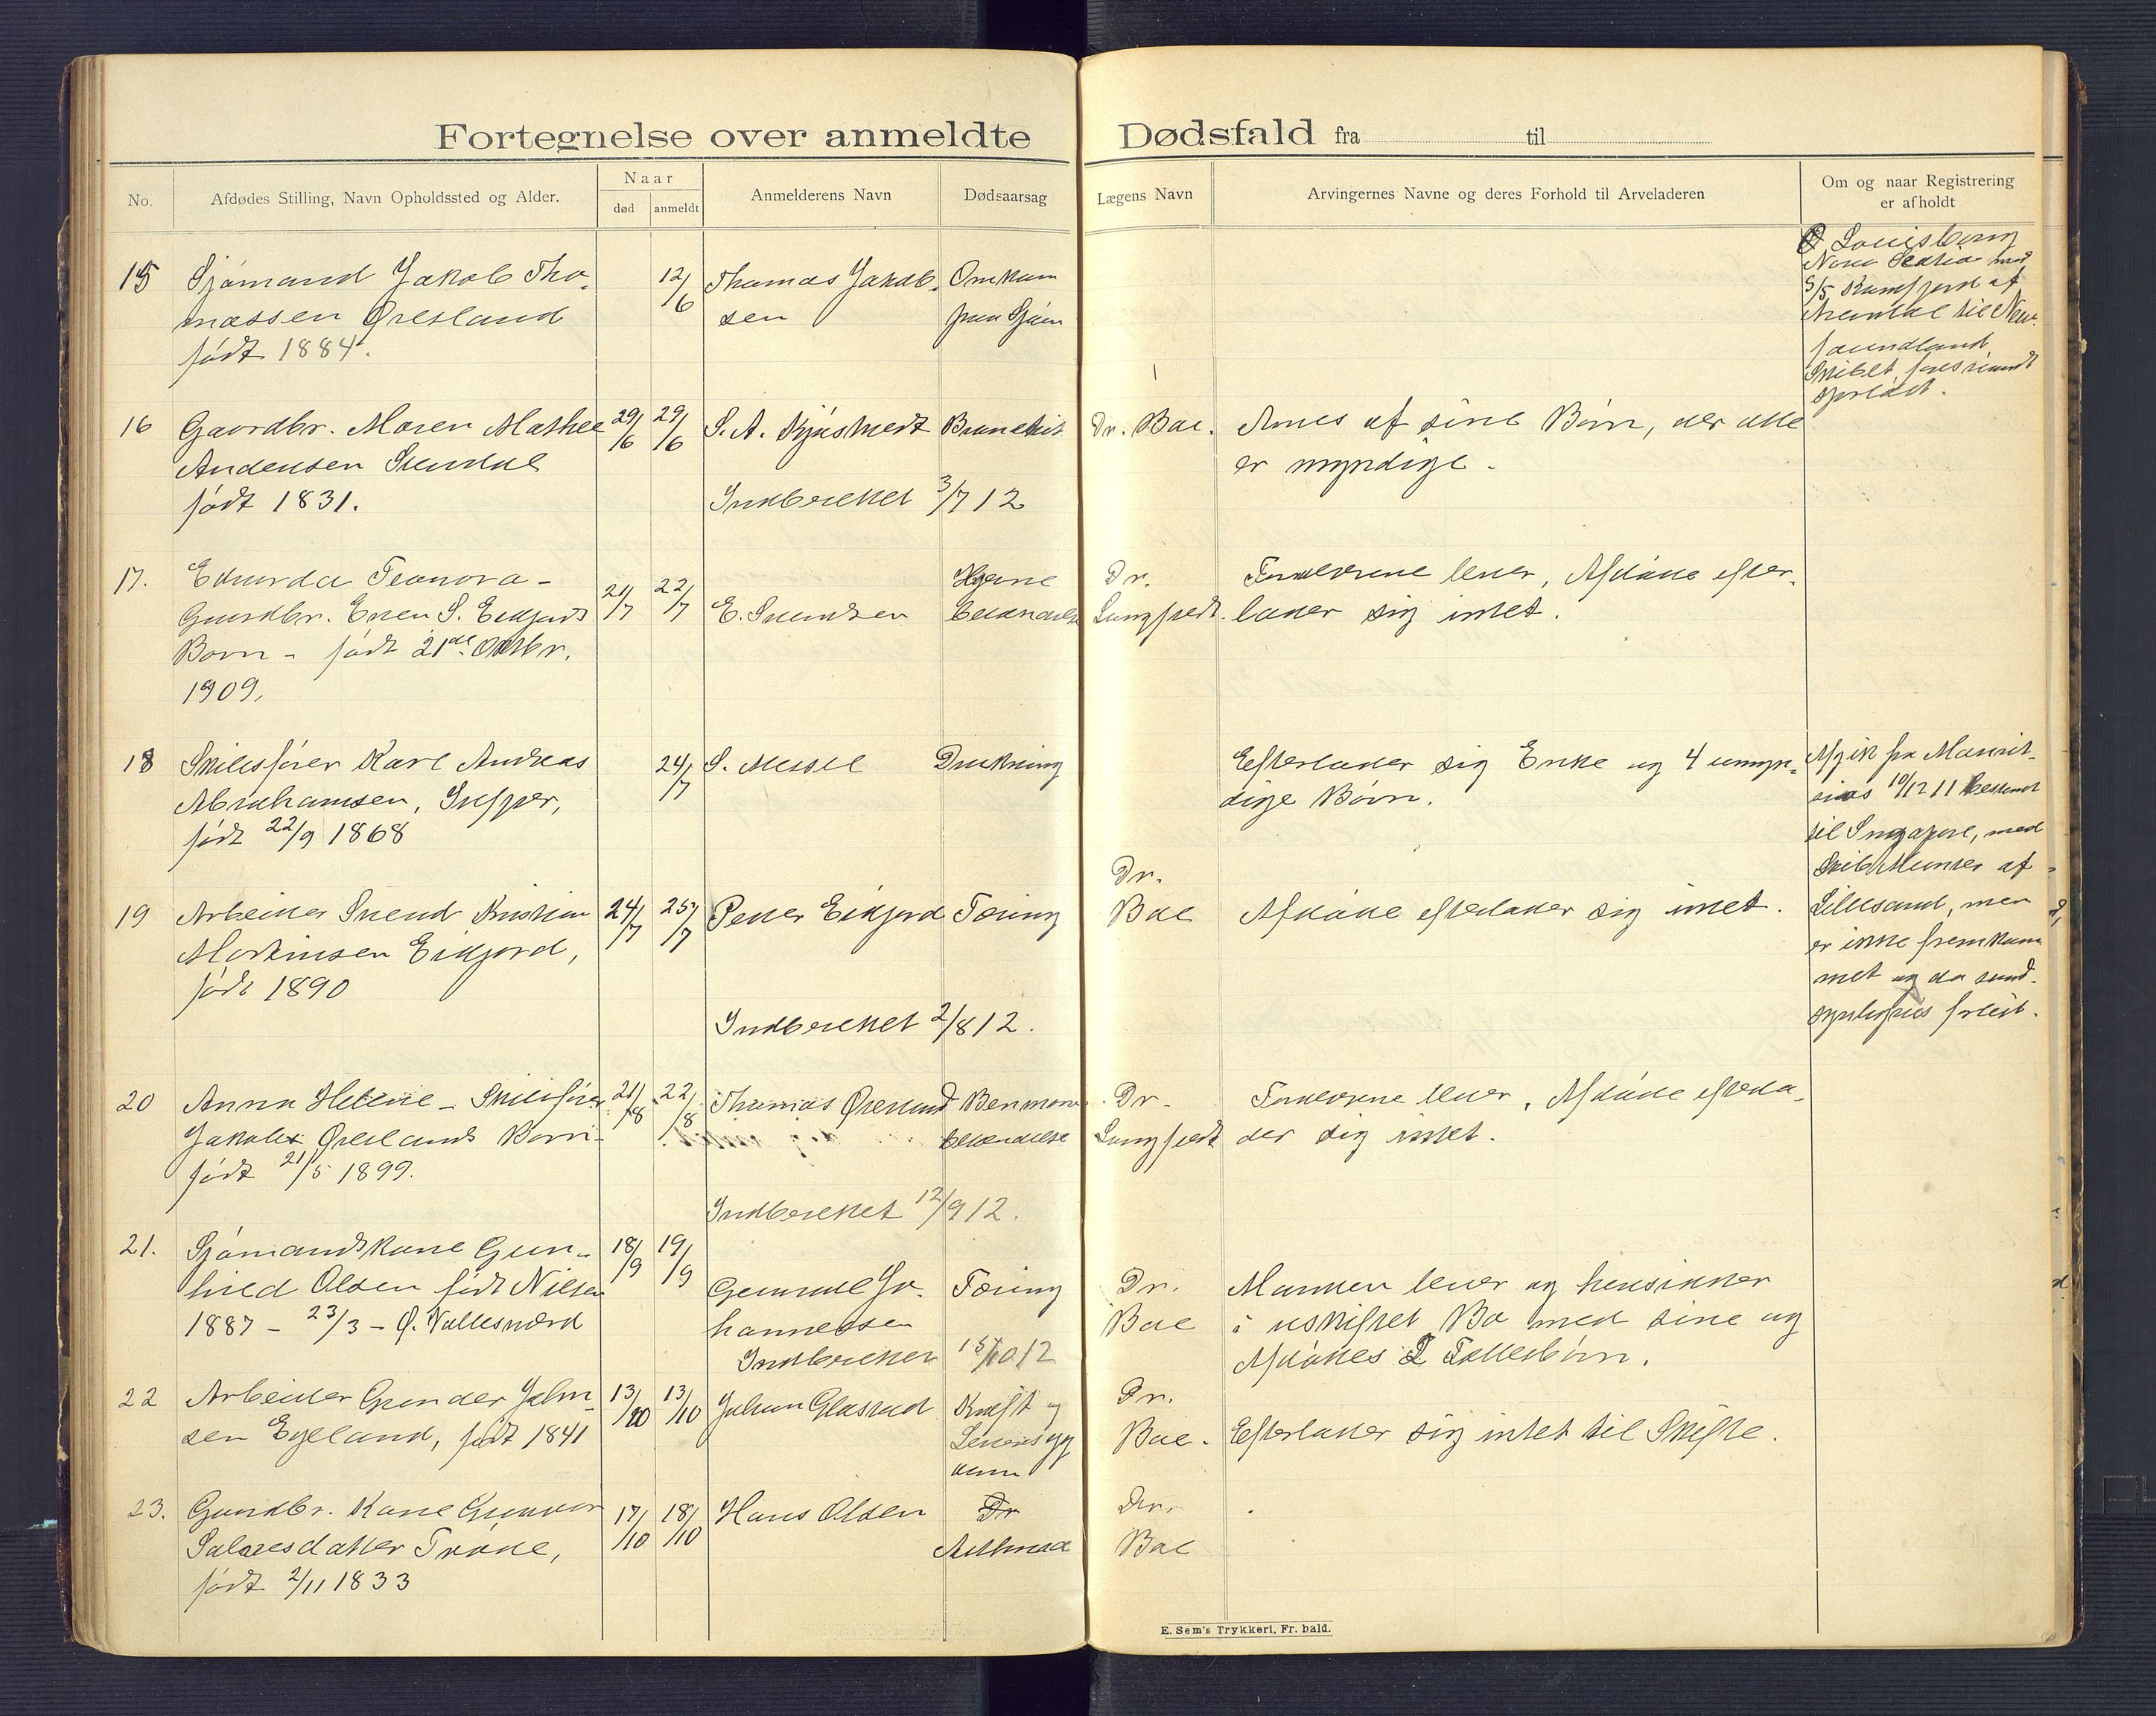 Fortegnelse over anmeldte Dødsfald fra til
No.
Afdødes Stilling, Navn Opholdssted og Alder.
Naar
død
anmeldt
Anmelderens Navn
Dødsaarsag
Lægens Navn
Arvingernes Navne og deres Forhold til Arveladeren
Om og naar Registrering
er afholdt
15
Sjømand Jakob Tho-
massen Øresland
født 1884.
12/6
Thomas Jakob-
sen
Omkom
paa Sjøen
Louisburg
Nova Scotia med
af
Arendal til New-
foundland
Skibet
16
Gaardbr. Maren Mathea
Andersen Sundal
født 1831.
29/6
29/6
S. A.
Bronchit
Dr. Boe.
Arves af sine Børn, der alle
er myndige.
Indberettet 3/7 12
17.
Edvarda Teonora -
Gaardbr. Even S. Eikjords
Barn - født 21de Oktbr.
1909.
21/7
22/7
E. Svendsen
Hjerne
betændelse
Dr.
Langfeldt.
Forældrene lever. Afdøde efter-
lader sig intet.
18
Skibsfører Karl Andreas
Abrahamsen,
født 22/9 1868
24/7
S. Messel
Drukning
Efterlader sig Enke og 4 umyn-
dige Børn.
Afgik fra Maurit-
sius 10/12 11 bestemt
til Singapore, med
Skib af
Lillesand, men
er ikke fremkom
met og da sand-
synligvis forlist.
19
Arbeider Svend Kristian
Martinsen Eikjord,
født 1890
24/7
25/7
Peder Eikjord
Tæring
Dr.
Boe
Afdøde efterlader sig intet.
Indberettet 2/8 12.
20
Anna Helene - Skibsfører
Jakob Øreslands Barn -
født 21/5 1899.
21/8
22/8
Thomas Øresland
Benmarv
betændelse
Dr.
Langfeldt
Forældrene lever. Afdøde efterla-
der sig intet.
Indberettet 12/9 12.
21.
Sjømandskone Gun-
hild Olsen født Nilsen
1887 - 23/3 - Ø. Vallesværd
18/9
19/9
Gunvald Jo-
hannessen
Tæring
Dr.
Boe
Manden lever og hensidder
i uskiftet Bo med sine og
Afdødes 2 Fællesbørn.
Indberettet 15/10 12
22
Arbeider Gunder John-
sen Egeland, født 1841
13/10
13/10
Johan Glastad
Kræft og
Leversyg
dom
Dr.
Boe.
Efterlader sig intet til Skifte.
23.
Gaardbr. Kone Gunvor
Salvesdatter Tveide,
født 2/11 1833
17/10
18/10
Hans Olsen
Dr
Asthma
Dr.
Boe
E. Sem's Trykkeri, Fr. hald.